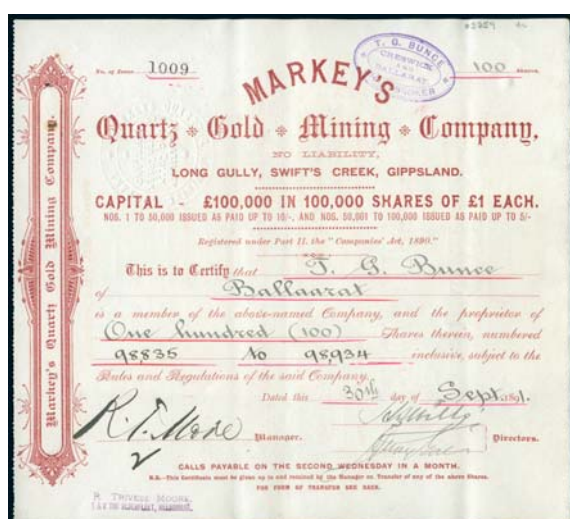 No. of Scrip 1009
100 Shares.
T. G. BUNCE
CRESWICK
AND
BALLARAT
MARKEY'S
Quartz Gold Mining Company,
NO LIABILITY,
LONG GULLY, SWIFT'S CREEK, GIPPSLAND.
CAPITAL - £100,000 IN 100,000 SHARES OF £1 EACH.
NOS. 1 TO 50,000 ISSUED AS PAID UP TO 10/-, AND NOS. 50,001 TO 100,000 ISSUED AS PAID UP TO 5/-
Registered under Part II. the "Companies' Act, 1890."
This is to Certify that T. G. Bunce
of Ballaarat
is a member of the above-named Company, and the proprietor of
One hundred (100) Shares therein, numbered
98835 to 98,934 inclusive, subject to the
Rules and Regulations of the said Company.
Dated this 30th day of Sept. 1891.
Manager.
Directors.
CALLS PAYABLE ON THE SECOND WEDNESDAY IN A MONTH.
N.B.—This Certificate must be given up to and retained by the Manager on Transfer of any of the above Shares.
FOR FORM OF TRANSFER SEE BACK.
Markey's Quartz Gold Mining Company.